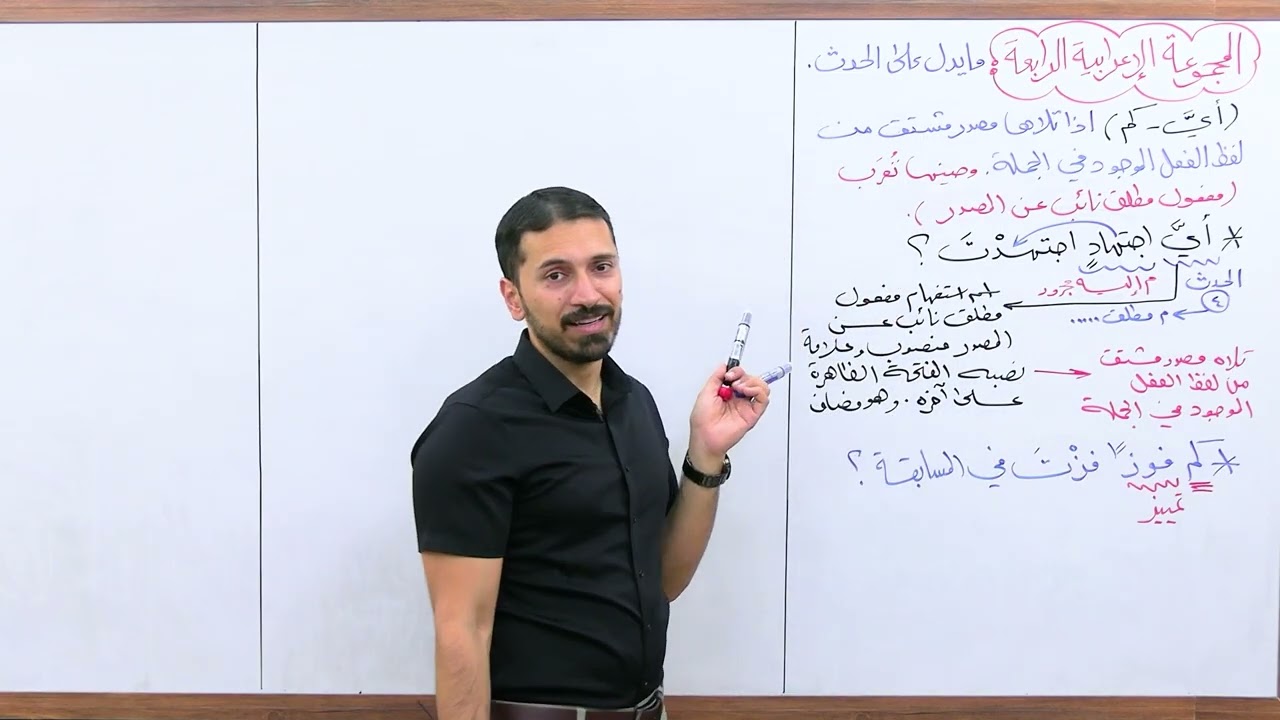 المجموعة الإعرابية الرابعة : مايدل على الحدث.
(أيَّ - كم) اذا تلاها مصدر مشتق من
لفظ الفعل الموجود في الجملة. وحينها تُعرَب
(مفعول مطلق نائب عن المصدر).
* أيَّ اجتهادٍ اجتهدْتَ ؟
الحدث
م إليه مجرور
٤
م مطلق.....
اسم استفهام مفعول
مطلق نائب عن
المصدر منصوب وعلامة
نصبه الفتحة الظاهرة
على آخره. وهو مضاف
تلاه مصدر مشتق
من لفظ الفعل
الموجود في الجملة
* كم فوزاً فزْتَ في المسابقة ؟
تمييز